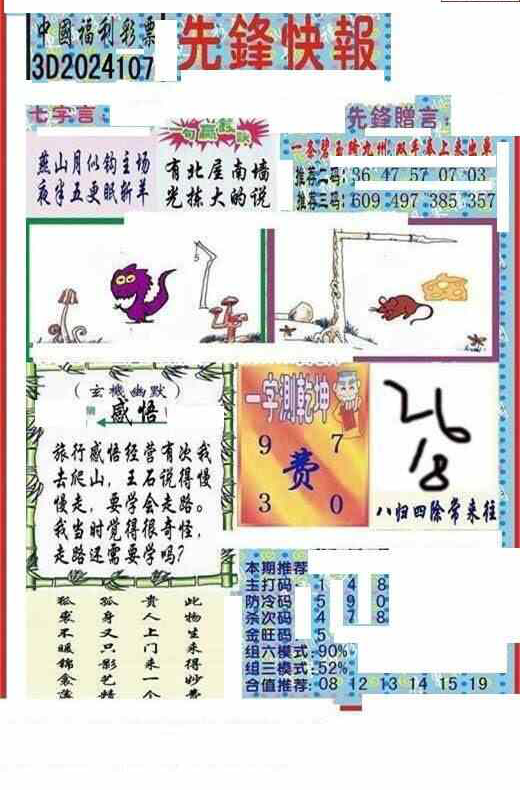 中國福利彩票
3D2024107
先鋒快報
七字言:
燕山月似钩主场
夜半五更眠新羊
一句贏錢訣
有北屋南墙
光拣大的说
先鋒贈言:
一条碧玉跨九州,双手奉上来出单
推荐二码:36 47 57 07 03
推荐三码:609 497 385 357
(玄機幽默)
感悟
旅行感悟经营有次我
去爬山,王石说得慢
慢走,要学会走路。
我当时觉得很奇怪,
走路还需要学吗?
一字測乾坤
9 7
费
3 0
26
18
八归四除常来往
此物生来得妙
贵人上门来一个
孤身又只影艺
狐裘不暖锦衾薄
本期推荐
主打码: 1 4 8
防冷码: 5 9 0
杀次码: 4 7 8
金旺码: 5
组六模式:90%
组三模式:52%
合值推荐:08 12 13 14 15 19